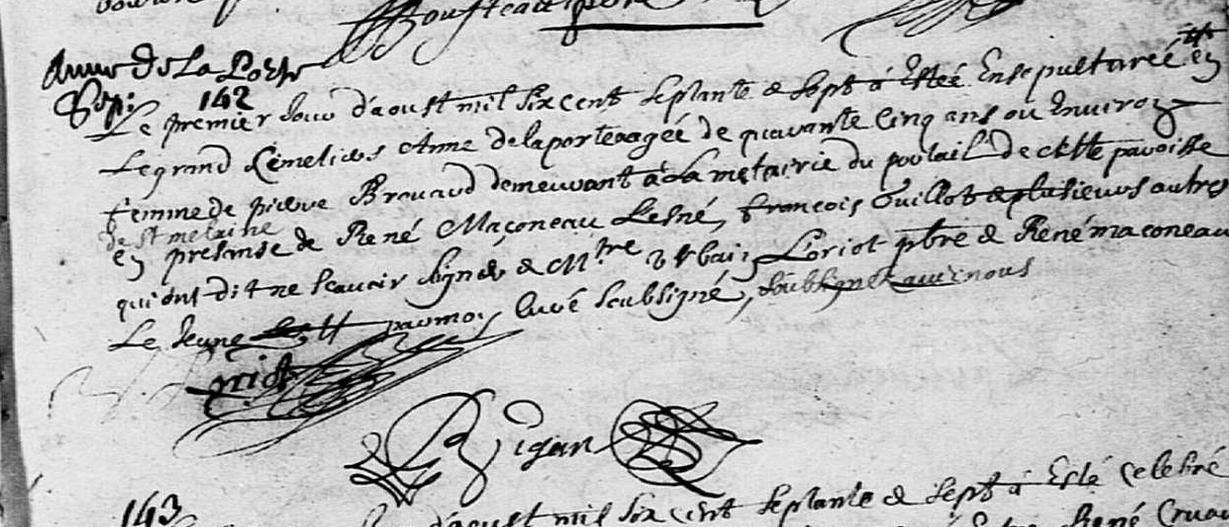 Anne de La Porte
Sep: 142
Le premier Jour d'aoust mil Six cent septante & sept a Esteé Ensepultureé en
Le grand Cimetiere Anne delaporte aageé de quarante Cinq ans ou Environ
femme de pierre Brouard demeurant a La metairie du portail de cette paroisse
de St melaine
En presanse de René Maçoneau Lesné, francois Guillot & plusieurs autres
qui ont dit ne scavoir signer & Mtre Urbain Loriot pbre & René maconeau
Le Jeune par moy Curé soubsigné, soubsignes avec nous
Rigan
143
d'aoust mil six cent septante & sept a Esté Celebré
René